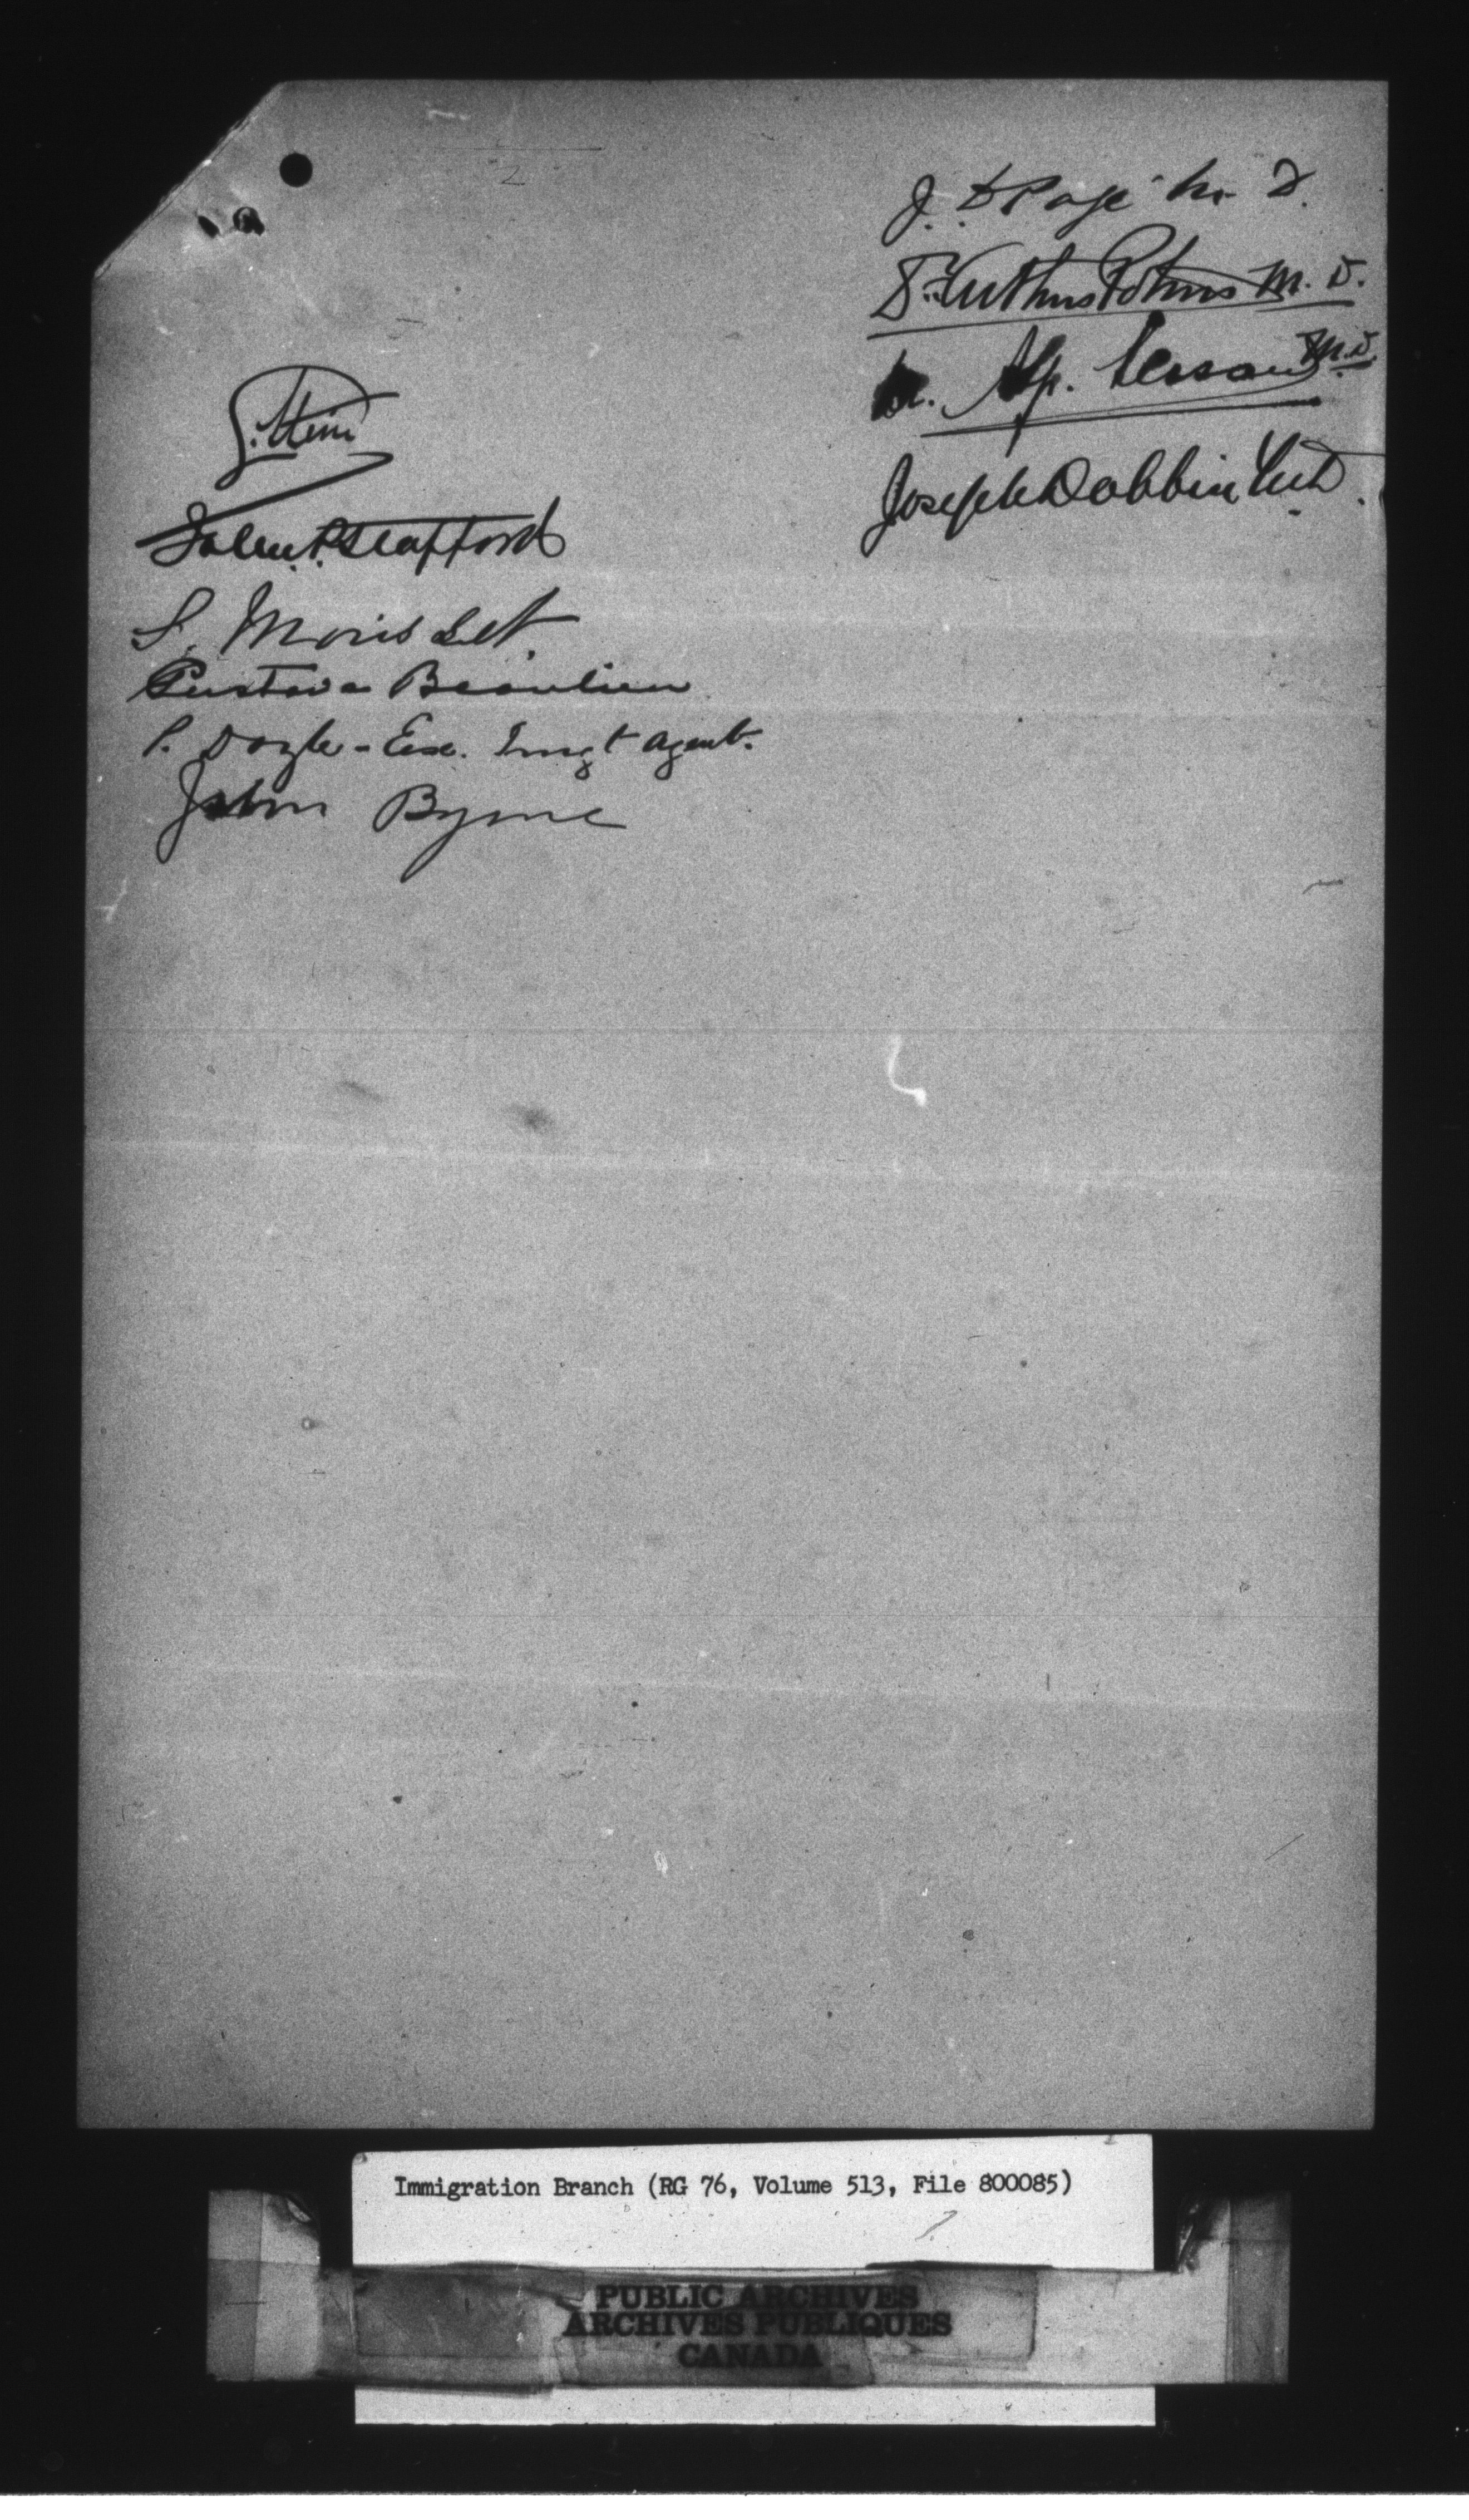 2
J. D Pagé M. D.
M. D.
Alp. M.D.
Joseph Dobbin
G. Stein
Stafford
L. Morisset.
Gustave Beaulieu
P. Doyle - Exe. Imgt Agent.
John Byrne
Immigration Branch (RG 76, Volume 513, File 800085)
PUBLIC ARCHIVES
ARCHIVES PUBLIQUES
CANADA